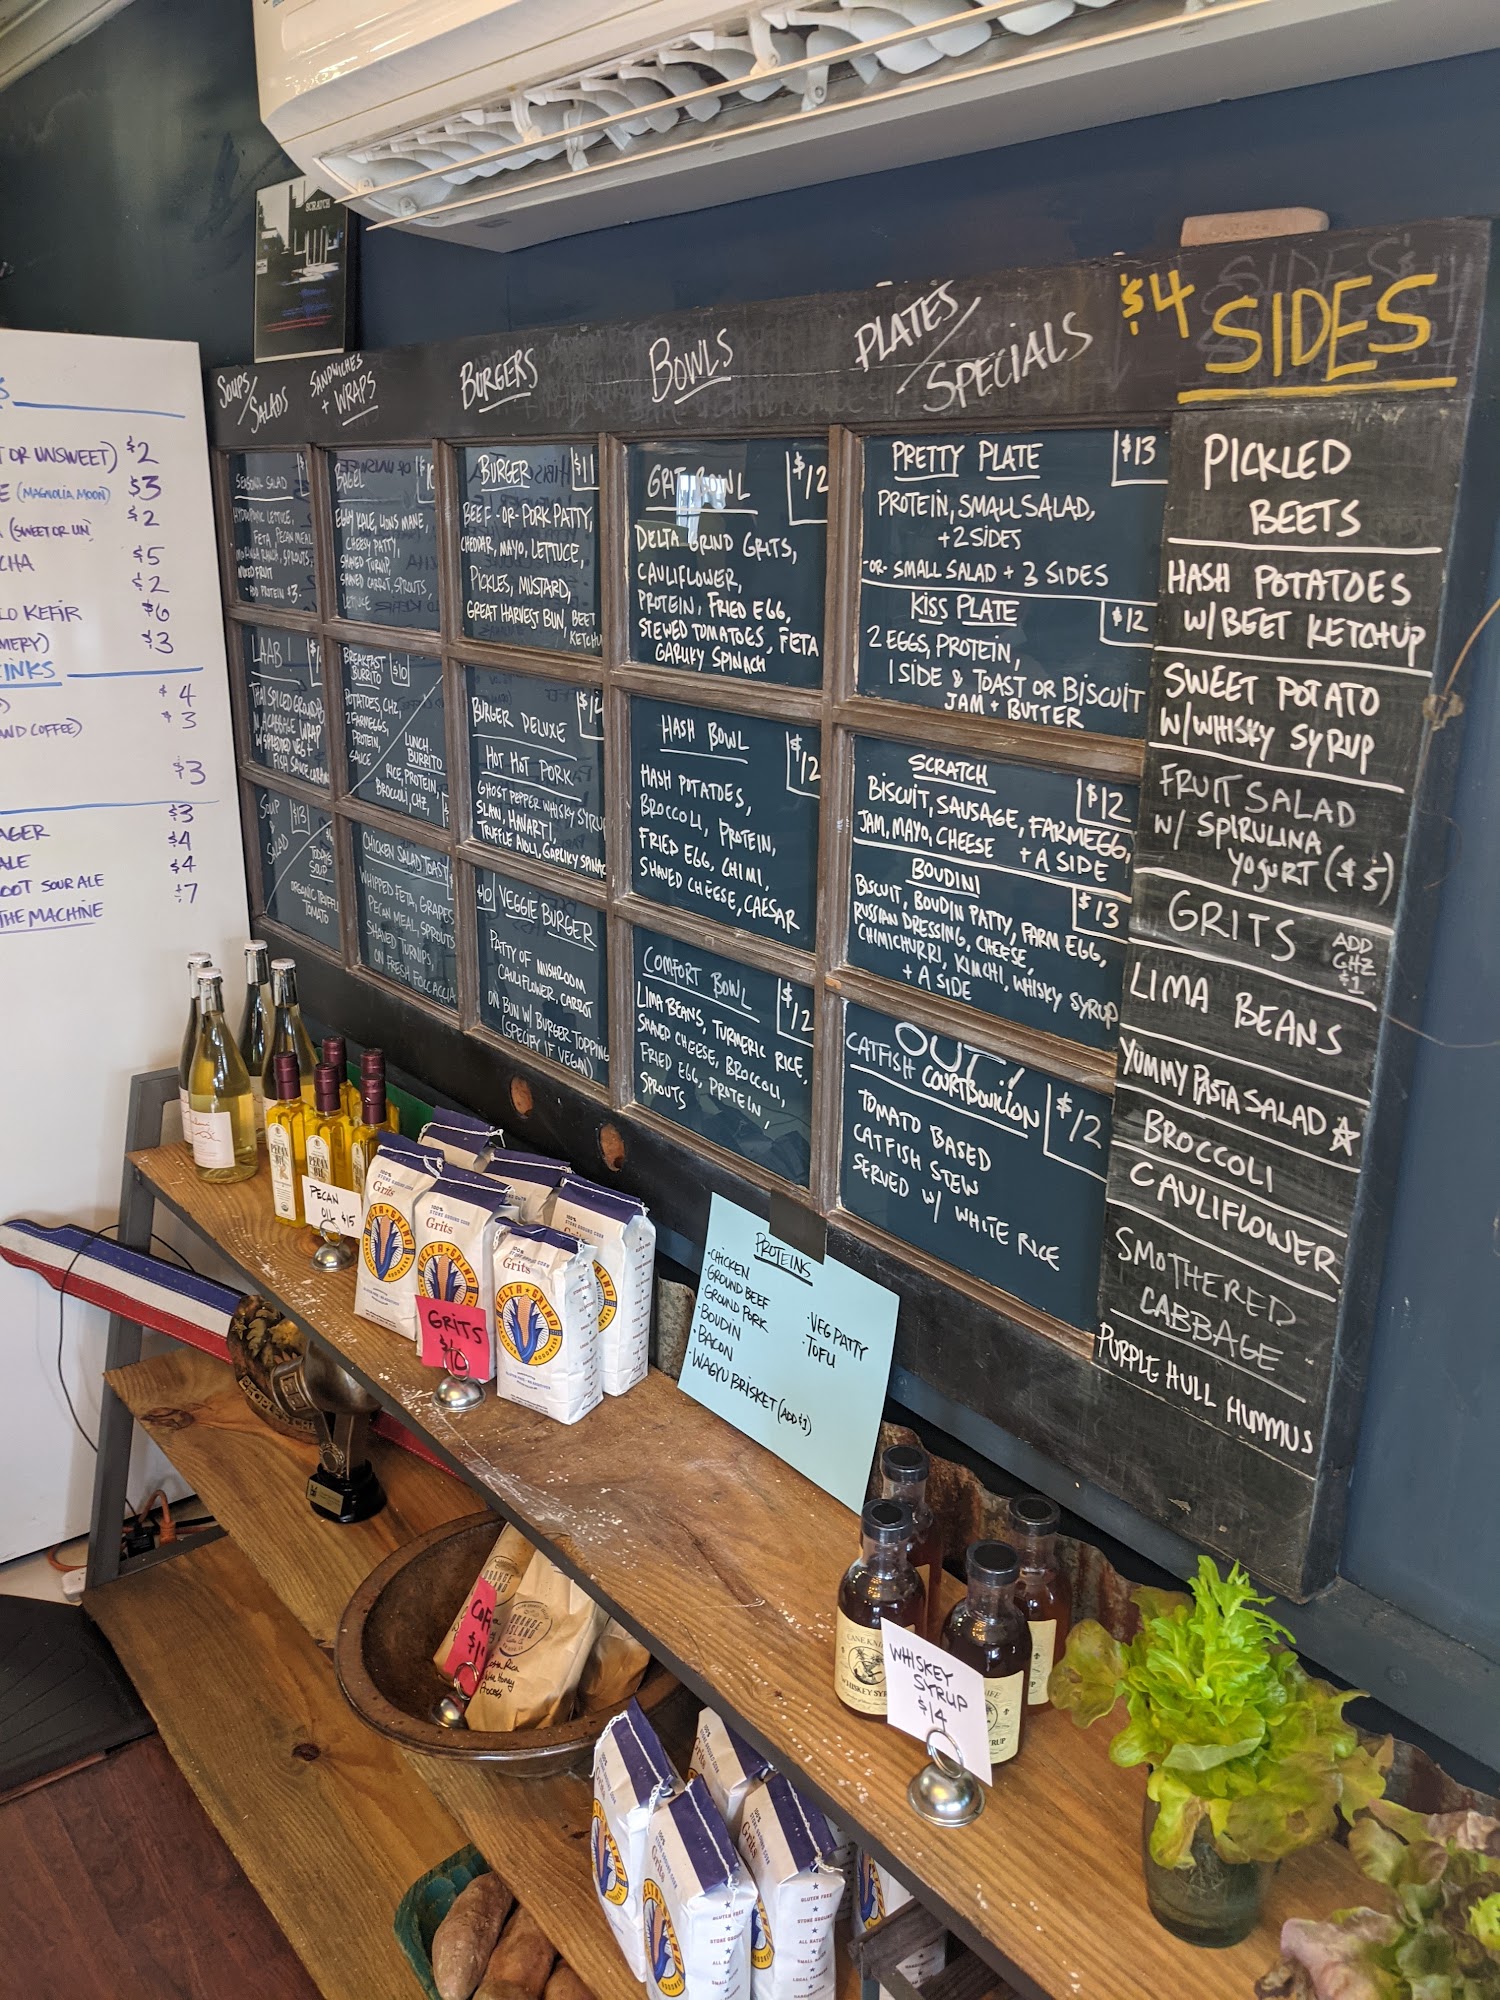 SCRATCH
T OR UNSWEET) $2
(MAGNOLIA MOON) $3
(SWEET OR UN $2
CHA $5
$2
LO KEFIR $6
MERY) $3
RINKS
$4
AND COFFEE) $3
$3
$3
AGER $4
ALE $4
OOT SOUR ALE $7
THE MACHINE
SOUPS/
SALADS
SEASONAL SALAD
HYDROPONIC LETTUCE,
FETA, PECAN MEAL
RANCH, SPROUTS
MIXED FRUIT
- ADD PROTEIN $3.
LAAB!
THAI SPICED GROUND
IN A CABBAGE WRAP
W/ SHREDDED VEG +
FISH SAUCE
SOUP $13
&
SALAD
TODAY'S
SOUP
ORGANIC TRUFFLE
TOMATO
SANDWICHES
+ WRAPS
BAGEL
EGGY KALE, LIONS MANE,
CHEESY PATTY,
SHAVED TURNIP,
SHAVED CARROT, SPROUTS,
LETTUCE
BREAKFAST
BURRITO $10
POTATOES, CHZ,
2 FARM EGGS,
PROTEIN,
SAUCE
LUNCH
BURRITO
RICE, PROTEIN,
BROCCOLI, CHZ,
CHICKEN SALAD TOAST
WHIPPED FETA, GRAPES
PECAN MEAL, SPROUTS
SHAVED TURNIPS,
ON FRESH FOCCACCIA
BURGERS
BURGER $11
BEEF -OR- PORK PATTY,
CHEDDAR, MAYO, LETTUCE,
PICKLES, MUSTARD,
GREAT HARVEST BUN, BEET
KETCHU
BURGER DELUXE $12
HOT HOT PORK
GHOST PEPPER WHISKY SYRUP
SLAW, HAVARTI,
TRUFFLE AIOLI, GARLIKY SPINAC
$10 VEGGIE BURGER
PATTY OF MUSHROOM
CAULIFLOWER, CARROT
ON BUN W/ BURGER TOPPING
(SPECIFY IF VEGAN)
BOWLS
GRIT BOWL $12
DELTA GRIND GRITS,
CAULIFLOWER,
PROTEIN, FRIED EGG,
STEWED TOMATOES, FETA
GARLIKY SPINACH
HASH BOWL $12
HASH POTATOES,
BROCCOLI, PROTEIN,
FRIED EGG, CHIMI,
SHAVED CHEESE, CAESAR
COMFORT BOWL $12
LIMA BEANS, TURMERIC RICE,
SHAVED CHEESE, BROCCOLI,
FRIED EGG, PROTEIN,
SPROUTS
PLATES/
SPECIALS
PRETTY PLATE $13
PROTEIN, SMALL SALAD,
+ 2 SIDES
-OR- SMALL SALAD + 3 SIDES
KISS PLATE $12
2 EGGS, PROTEIN,
1 SIDE & TOAST OR BISCUIT
JAM + BUTTER
SCRATCH $12
BISCUIT, SAUSAGE, FARM EGG,
JAM, MAYO, CHEESE + A SIDE
BOUDINI $13
BISCUIT, BOUDIN PATTY, FARM EGG,
RUSSIAN DRESSING, CHEESE,
CHIMICHURRI, KIMCHI, WHISKY SYRUP
+ A SIDE
OUT!
CATFISH COURTBOUILLON $12
TOMATO BASED
CATFISH STEW
SERVED W/ WHITE RICE
$4 SIDES
PICKLED
BEETS
HASH POTATOES
W/ BEET KETCHUP
SWEET POTATO
W/ WHISKY SYRUP
FRUIT SALAD
W/ SPIRULINA
YOGURT ($5)
GRITS ADD
CHZ
$1
LIMA BEANS
YUMMY PASTA SALAD
BROCCOLI
CAULIFLOWER
SMOTHERED
CABBAGE
PURPLE HULL HUMMUS
PROTEINS
· CHICKEN
· GROUND BEEF
· GROUND PORK
· BOUDIN
· BACON
· WAGYU BRISKET (ADD $1)
· VEG PATTY
· TOFU
PECAN
OIL $15
100%
Grits
DELTA GRIND
GRITS
$10
WHISKEY
SYRUP
$14
CANE KNIFE
WHISKEY SY
COF
ORANGE
ISLAND
Costa Rica
White Honey
Process
Grits
GLUTEN FREE
STONE GROUND
ALL NATURAL